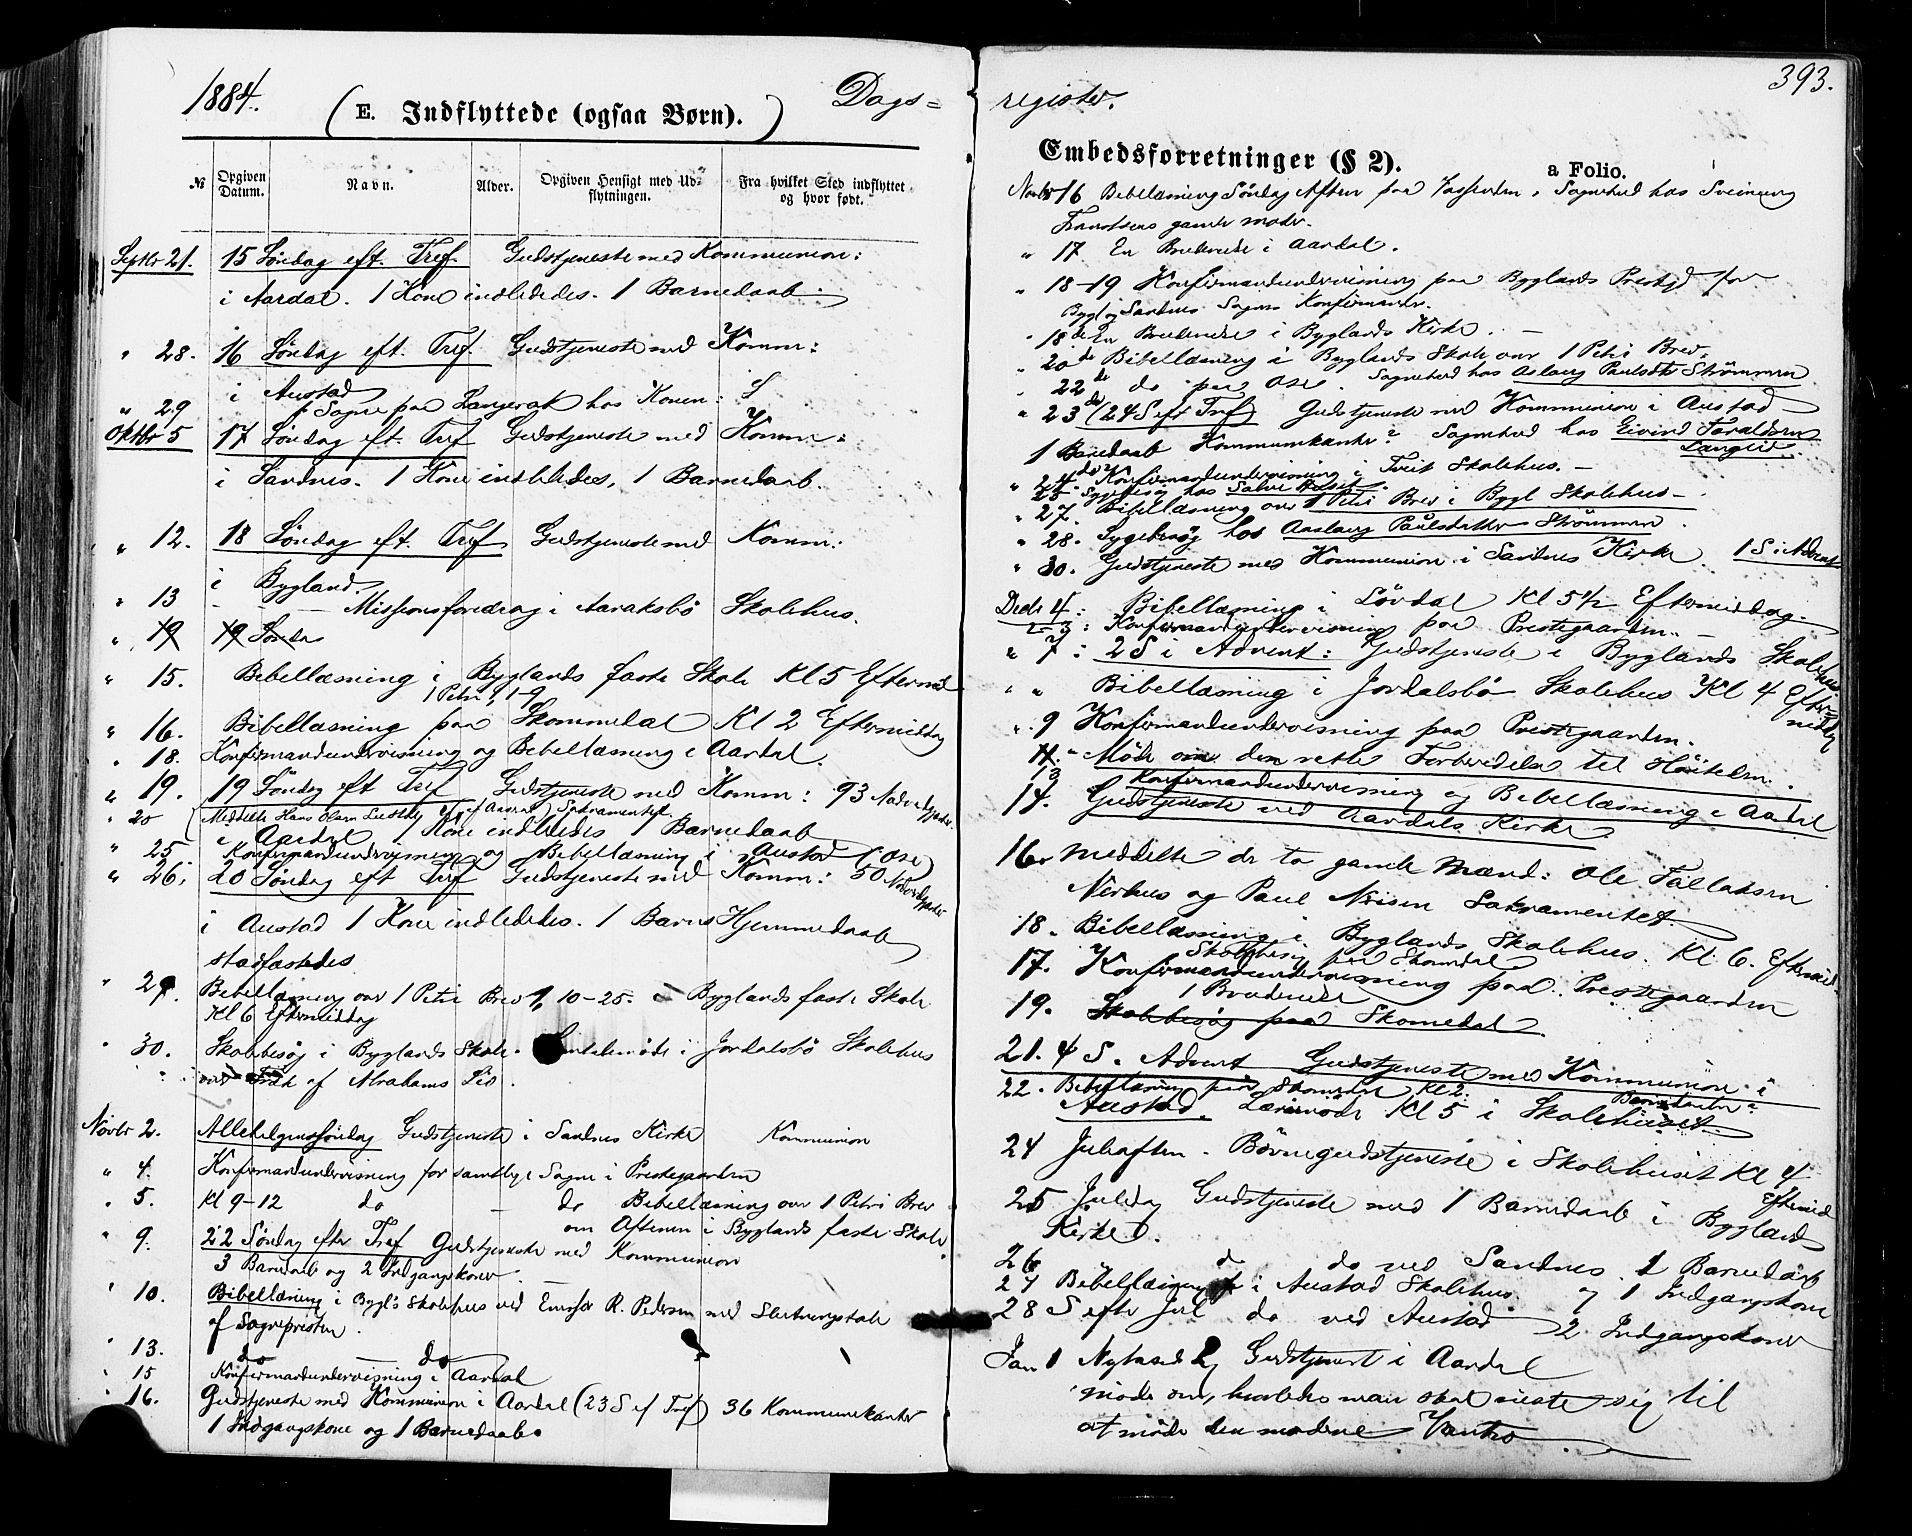 1884.
(E. Indflyttede (ogsaa Børn).) Dags=
№ Opgiven Datum. Navn. Alder. Opgiven Hensigt med Udflytningen. Fra hvilket Sted indflyttet og hvor født.
Septbr 21. 15 Søndag eft. Tref. Gudstjeneste med Kommunion:
i Aardal. 1 Kone indlededes. 1 Barnedaab.
" 28. 16 Søndag eft. Tref. Gudstjeneste med Komm:
i Austad
" 29 i Sogne paa Langerak hos Konen:
Oktbr 5 17 Søndag eft. Tref Gudstjeneste med Komm:
i Sandnes. 1 Kone indlededes, 1 Barnedaab.
" 12. 18 Søndag eft. Tref Gudstjeneste med Komm:
i Bygland.
" 13 - - Missionsforedrag i Aaraksbø Skolehus.
" 19 19 Sønda
" 15. Bibellæsning i Byglands faste Skole Kl 5 Eftermid
1 Petri 1, 1-9
" 16. Bibellæsning paa Skommedal Kl 2 Eftermiddag
" 18. Konfirmandundervisning og Bibellæsning i Aardal.
" 19. 19 Søndag eft Tref Gudstjeneste med Komm: 93 Nadverdgjæster
" 20 (Meddelte Hans Olsen af Aardal Sakramentet.
i Aardal 1 Kone indlededes 1 Barnedaab
" 25. Konfirmandundervisning og Bibellæsning i Austad (Ose)
" 26. 20 Søndag eft Tref Gudstjeneste med Komm: 50 Nadverdgjæster
i Austad 1 Kone indlededes. 1 Barns Hjemmedaab
stadfæstedes
" 29. Bibellæsning over 1 Petri Brev 1, 10-25. i Byglands faste Skole
Kl 6 Eftermiddag
" 30. Skolebesøg i Byglands Skole. Samtalemøde i Jordalsbø Skolehus
over Træk af Abrahams Liv.
Novbr 2. Allehelgenssøndag Gudstjeneste i Sandnes Kirke Kommunion
" 4. Konfirmandundervisning for samtlige Sogne i Prestegaarden
" 5. Kl 9-12 do - do Bibellæsning over 1 Petri Brev
om Aftenen i Byglands faste Skole
" 9. 22 Søndag efter Tref Gudstjeneste med Kommunion
3 Barnedaab og 2 Indgangskoner.
" 10. Bibellæsning i Bygl's Skolehus ved R. Pedersen med Slutningstale
af Sognepresten.
" 13. do - do
" 15 Konfirmandundervisning i Aardal
" 16. Gudstjeneste med Kommunion i Aardal (23 S ef Tref) 36 Kommunikanter
1 Indgangskone og 1 Barnedaab.
393.
register.
Embedsforretninger (§ 2).
a Folio.
Novbr 16 Bibellæsning Søndag Aften paa . Sognebud hos Sveinung
gamle moder.
" 17 En Brudevielse i Aardal.
" 18-19 Konfirmandundervisning paa Byglands Prestgd for
Bygl og Sandnes Sogns Konfirmander.
" 18de En Brudevielse i Byglands Kirke. -
" 20de Bibellæsning i Byglands Skole over 1 Petri Brev.
" 22de do paa Ose. Sognebud hos Aslaug Paulsdtr Strømmen
" 23de (24 S eft Tref) Gudstjeneste med Kommunion i Austad
1 Barnedaab Kommunikanter? Sognebud hos Eivind Taraldsen
Langeid.
" 24de Konfirmandundervisning i Tveit Skolehus. -
" 25 Sygebesøg hos Salve
" 27. Bibellæsning over 1 Petri Brev i Bygl Skolehus -
" 28. Sygebesøg hos Aaslaug Paulsdatter Strømmen.
" 30. Gudstjeneste med Kommunion i Sandnes Kirke. 1 S i Advent
Decbr 4: Bibellæsning i Løvdal Kl 5½ Eftermiddag.
2-3: Konfirmandundervisning paa Prestegaarden. -
" 7: 2 S i Advent: Gudstjeneste i Byglands Skolehus
" " Bibellæsning i Jordalsbø Skolehus Kl 4 Eftermiddag
" 9 Konfirmandundervisning paa Prestegaarden.
11. - Møde om den rette Forberedelse til Høitiden.
13 Konfirmandundervisning og Bibellæsning i Aardal
14. Gudstjeneste ved Aardals Kirke
16. meddelte de to gamle Mænd: Ole Tallaksen
Nerhus og Paul Nrisen Sakramentet.
18. Bibellæsning i Byglands Skolehus. Kl 6. Eftermid.
Skolebesøg paa Skomedal
17. Konfirmandundervisning paa Prestegaarden
1 Brudevielse
19. Skolebesøg paa Skomedal
21. 4 S. Advent Gudstjeneste med Kommunion i
22. Bibellæsning paa Skomedal Kl 2.
Austad. Læremøde Kl 5 i Skolehuset.
Barnedaab?
24 Juleaften. Børnegudstjeneste i Skolehuset Kl 4
Eftermid
25 Juledag Gudstjeneste med 1 Barnedaab i Bygland
Kirke.
26 do do ved Sandnes. 1 Barnedaab
27 Bibellæsning i Austad Skolehus. og 1 Indgangskone
28 S efter Jul do ved Austad 2 Indgangskoner
Jan 1 Nytaarsdag Gudstjenest i Aardal
møde om, hvorledes man skal ruste sig til
at møde den moderne Vantro